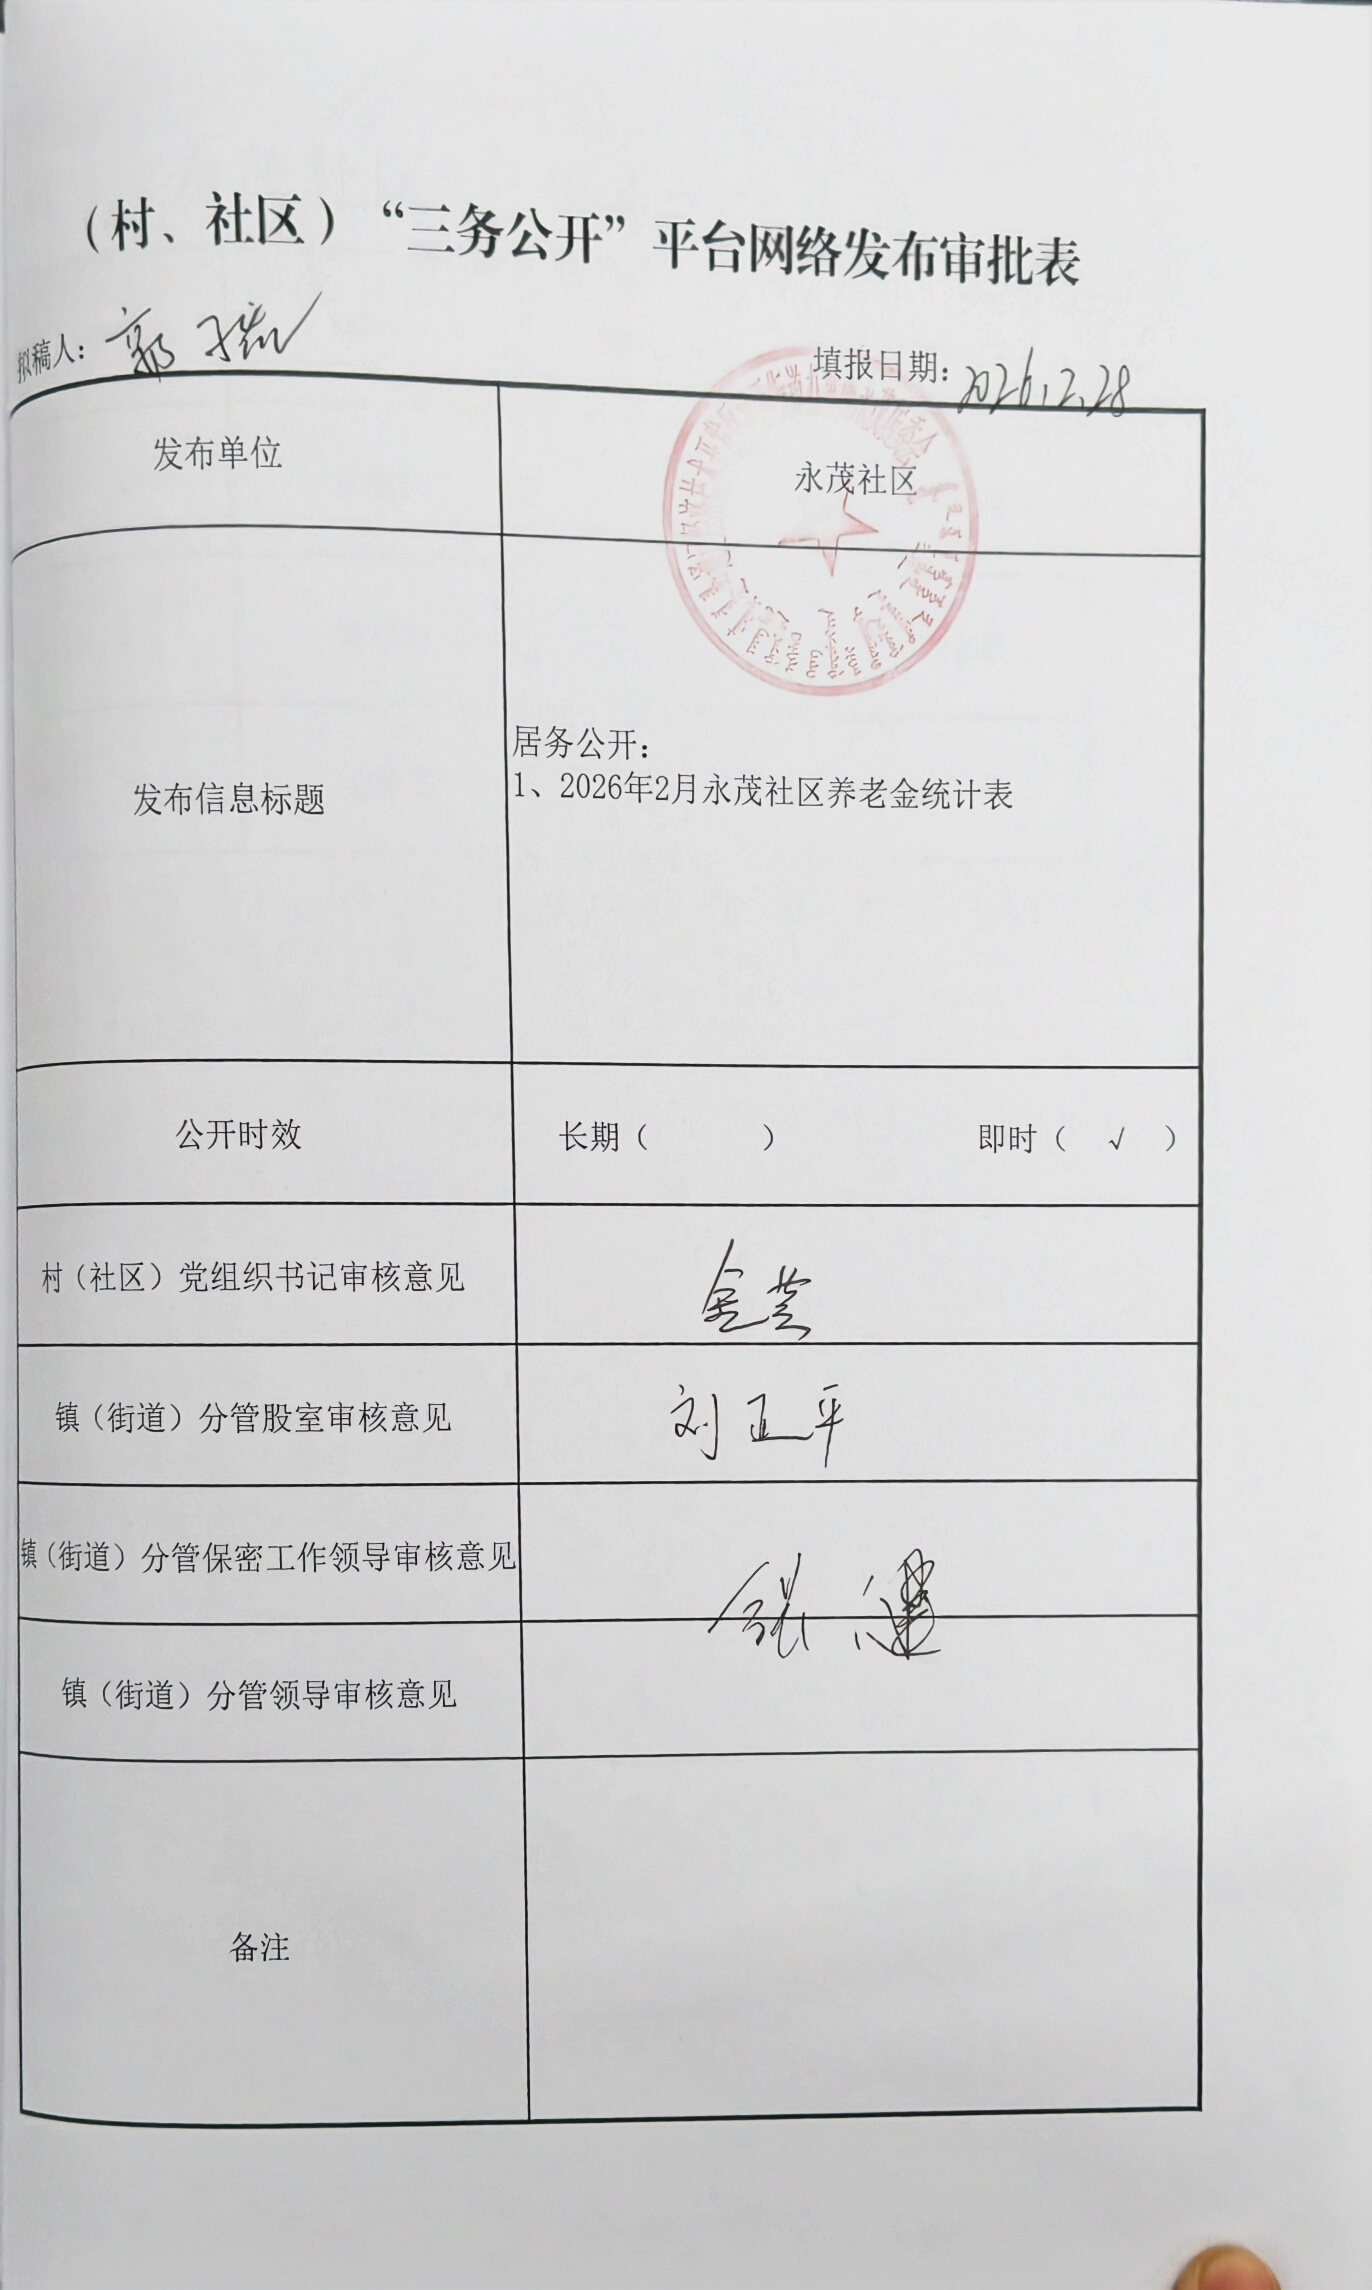 （村、社区）“三务公开”平台网络发布审批表
拟稿人：郭
填报日期：2026.2.28
发布单位
永茂社区
发布信息标题
居务公开：
1、2026年2月永茂社区养老金统计表
公开时效
长期（ ）
即时（ √ ）
村（社区）党组织书记审核意见
镇（街道）分管股室审核意见
刘正平
镇（街道）分管保密工作领导审核意见
镇（街道）分管领导审核意见
备注